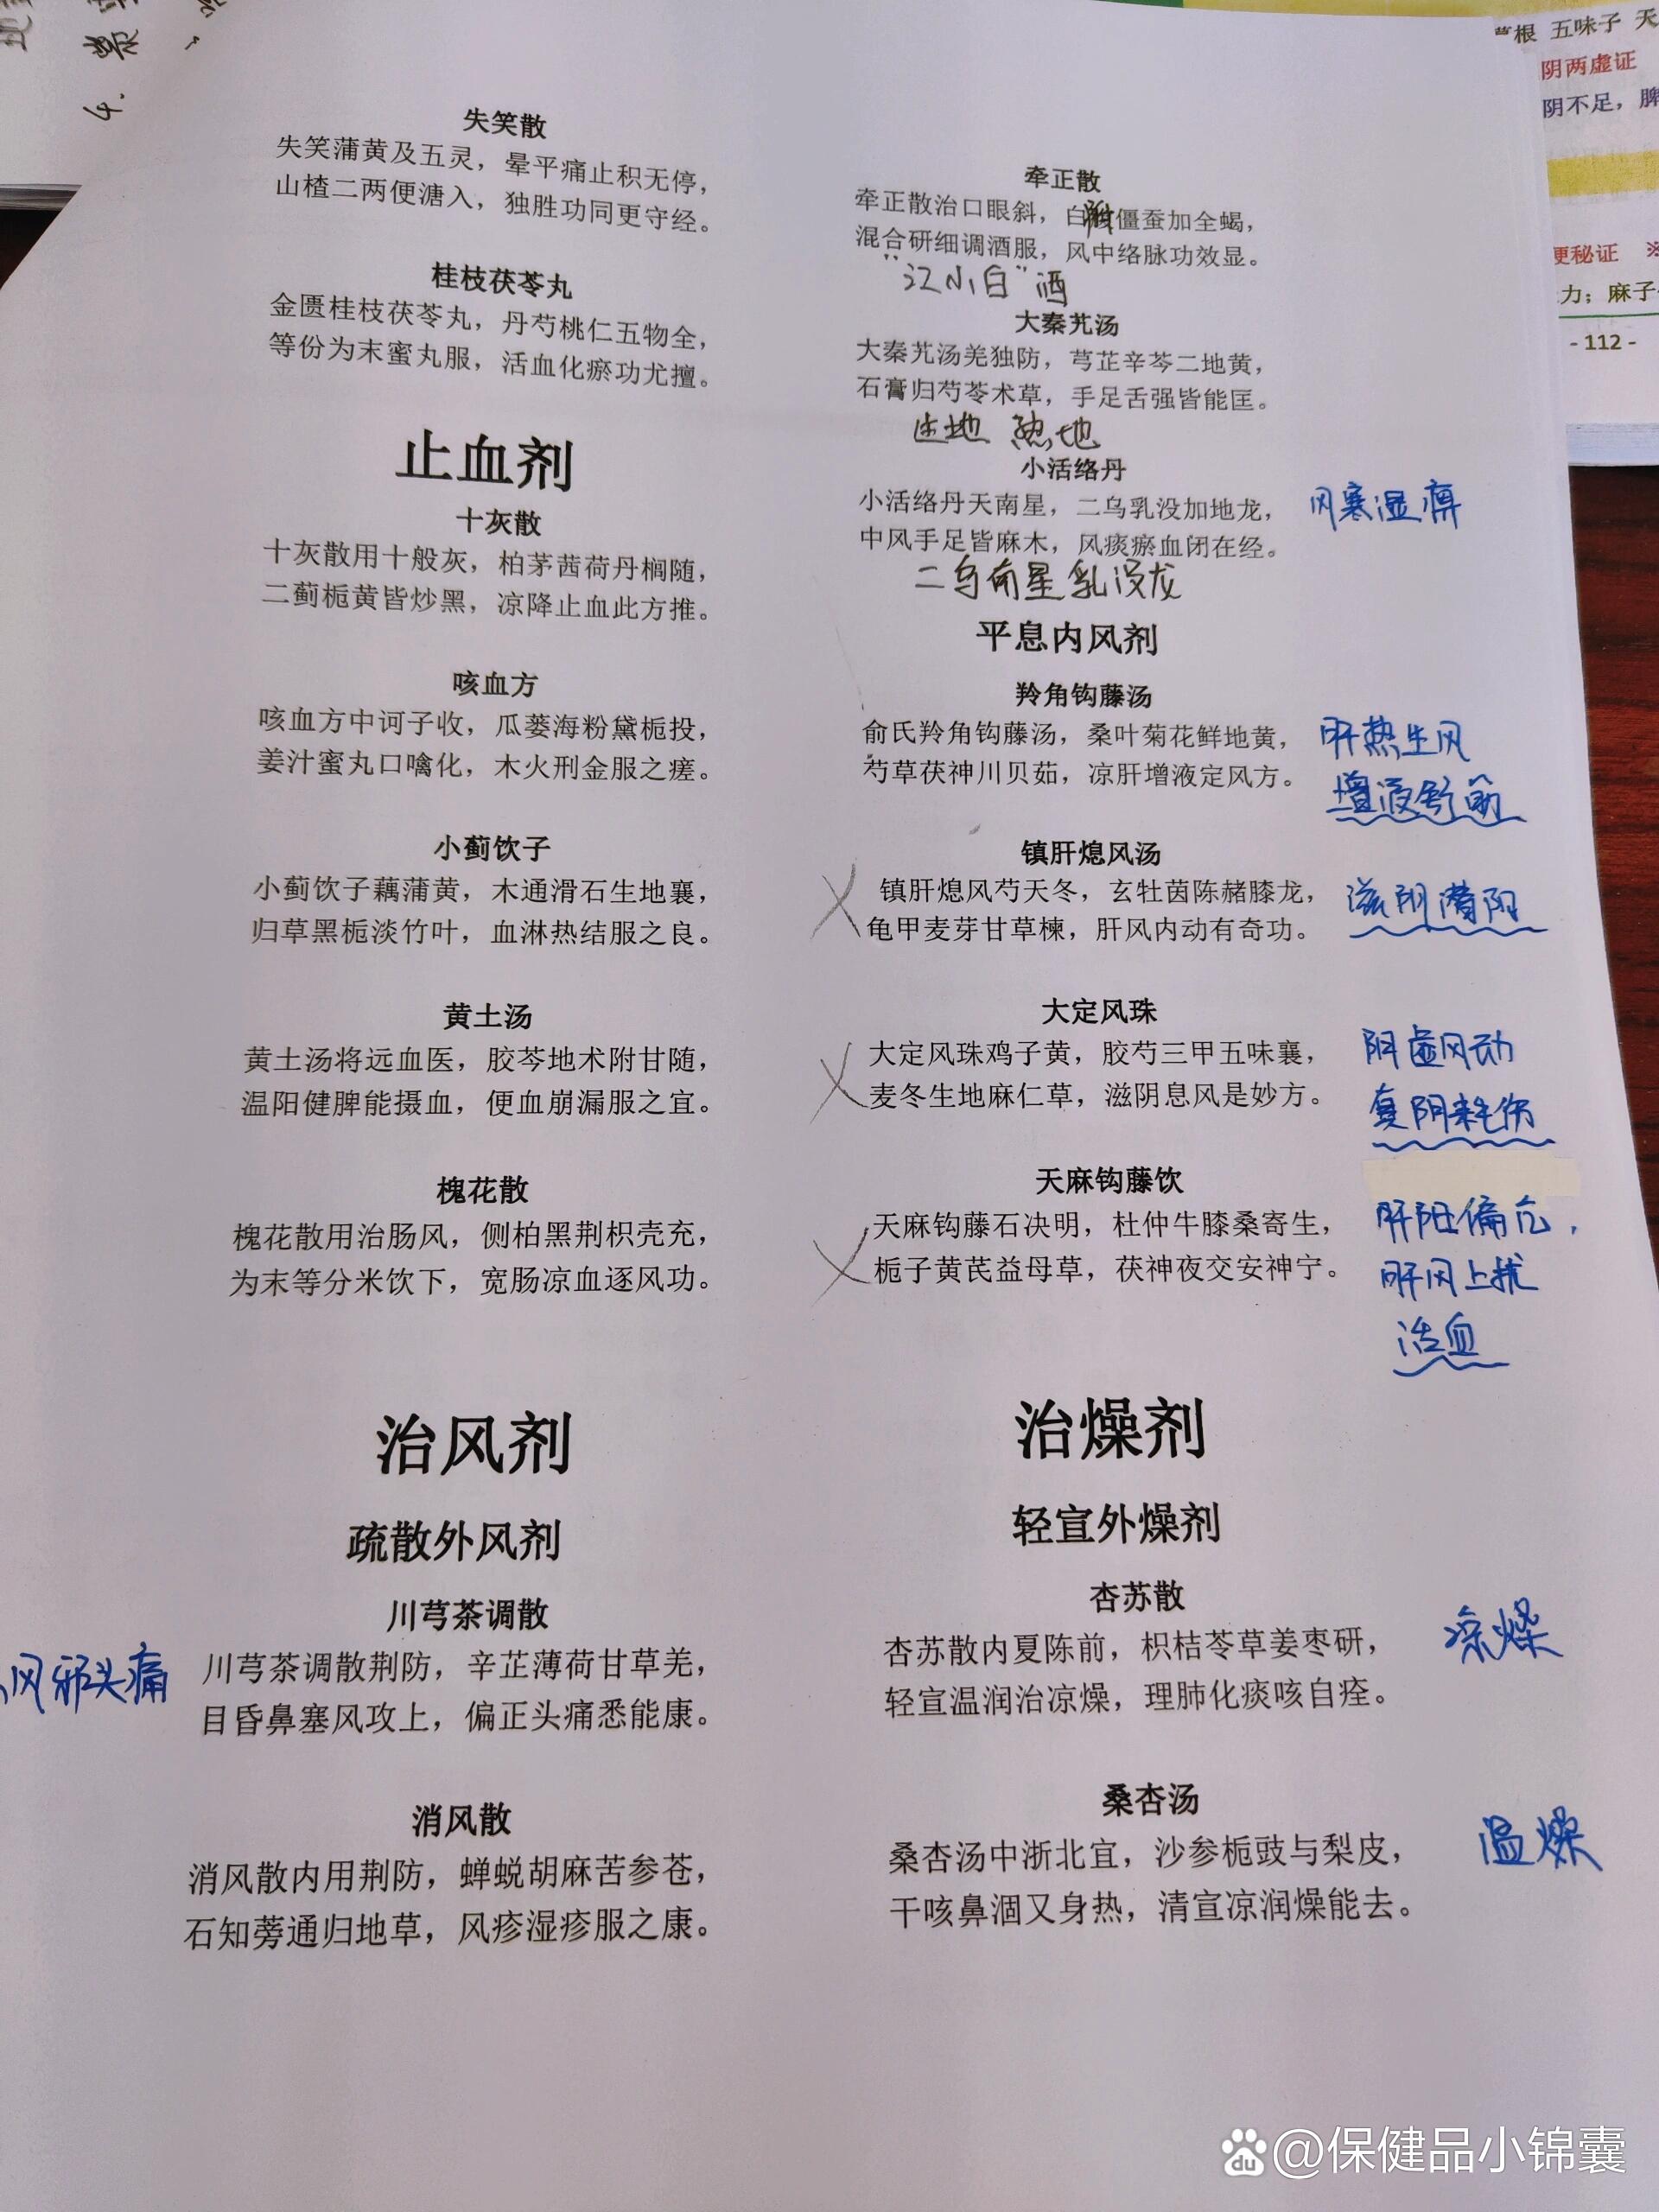 失笑散
失笑蒲黄及五灵，晕平痛止积无停，
山楂二两便溏入，独胜功同更守经。
桂枝茯苓丸
金匮桂枝茯苓丸，丹芍桃仁五物全，
等份为末蜜丸服，活血化瘀功尤擅。
止血剂
十灰散
十灰散用十般灰，柏茅茜荷丹榈随，
二蓟栀黄皆炒黑，凉降止血此方推。
咳血方
咳血方中诃子收，瓜蒌海粉黛栀投，
姜汁蜜丸口噙化，木火刑金服之瘥。
小蓟饮子
小蓟饮子藕蒲黄，木通滑石生地襄，
归草黑栀淡竹叶，血淋热结服之良。
黄土汤
黄土汤将远血医，胶芩地术附甘随，
温阳健脾能摄血，便血崩漏服之宜。
槐花散
槐花散用治肠风，侧柏黑荆枳壳充，
为末等分米饮下，宽肠凉血逐风功。
治风剂
疏散外风剂
川芎茶调散
风邪头痛
川芎茶调散荆防，辛芷薄荷甘草羌，
目昏鼻塞风攻上，偏正头痛悉能康。
消风散
消风散内用荆防，蝉蜕胡麻苦参苍，
石知蒡通归地草，风疹湿疹服之康。
牵正散
牵正散治口眼斜，白附僵蚕加全蝎，
混合研细调酒服，风中络脉功效显。
“江小白”酒
大秦艽汤
大秦艽汤羌独防，芎芷辛芩二地黄，
石膏归芍苓术草，手足舌强皆能匡。
生地 熟地
小活络丹
小活络丹天南星，二乌乳没加地龙，
风寒湿痹
中风手足皆麻木，风痰瘀血闭在经。
二乌南星乳没龙
平息内风剂
羚角钩藤汤
俞氏羚角钩藤汤，桑叶菊花鲜地黄，
肝热生风
芍草茯神川贝茹，凉肝增液定风方。
增液舒筋
镇肝熄风汤
镇肝熄风芍天冬，玄牡茵陈赭膝龙，
滋阴潜阳
龟甲麦芽甘草楝，肝风内动有奇功。
大定风珠
大定风珠鸡子黄，胶芍三甲五味襄，
阴虚风动
麦冬生地麻仁草，滋阴息风是妙方。
真阴耗伤
天麻钩藤饮
天麻钩藤石决明，杜仲牛膝桑寄生，
肝阳偏亢，
栀子黄芪益母草，茯神夜交安神宁。
肝风上扰
活血
治燥剂
轻宣外燥剂
杏苏散
杏苏散内夏陈前，枳桔苓草姜枣研，
凉燥
轻宣温润治凉燥，理肺化痰咳自痊。
桑杏汤
桑杏汤中浙北宜，沙参栀豉与梨皮，
温燥
干咳鼻涸又身热，清宣凉润燥能去。
根 五味子 天
阴两虚证
阴不足，脾
便秘证 ※
力；麻子
- 112 -
du @保健品小锦囊